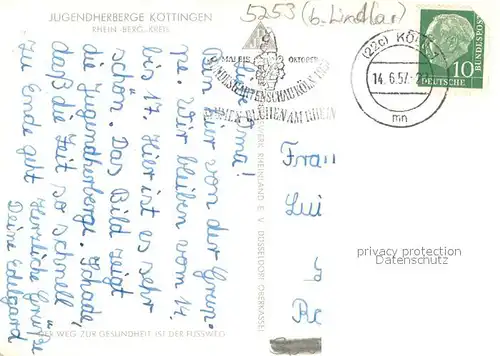 JUGENDHERBERGE KOTTINGEN
RHEIN.-BERG.-KREIS
5253 (b. Lindlar)
MAI BIS OKTOBER
BUNDESGARTENSCHAU KÖLN 1957
BLUMEN BLÜHEN AM RHEIN
(22c) KÖLN
14.6.57.
mn
10
DEUTSCHE
BUNDESPOST
Liebe Oma!
Bin hier von der Grup-
pe. Wir bleiben vom 14.
bis 17. Hier ist es sehr
schön. Das Bild zeigt
die Jugendherberge. Schade,
daß die Zeit so schnell
zu Ende geht. Herzliche Grüße
Deine Edelgard
RHEINLAND E. V. DÜSSELDORF-OBERKASSEL
Frau
Lui
Re
privacy protection
Datenschutz
DER WEG ZUR GESUNDHEIT IST DER FUSSWEG